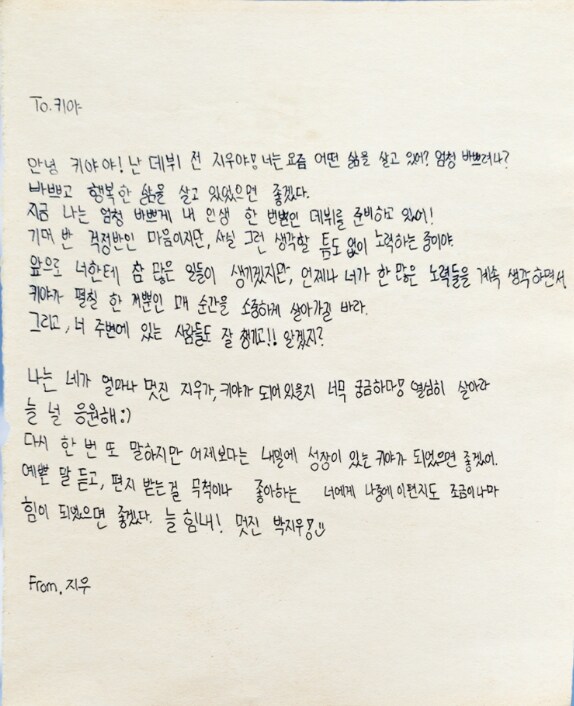 To.키야
안녕 키야야! 난 데뷔 전 지우야! 너는 요즘 어떤 삶을 살고 있어? 엄청 바쁘려나?
바쁘고 행복한 삶을 살고 있었으면 좋겠다.
지금 나는 엄청 바쁘게 내 인생 한 번뿐인 데뷔를 준비하고 있어!
기대 반 걱정반인 마음이지만, 사실 그런 생각할 틈도 없이 노력하는 중이야.
앞으로 너한테 참 많은 일들이 생기겠지만, 언제나 너가 한 많은 노력들을 계속 생각하면서
키야가 펼칠 한 번뿐인 매 순간을 소중하게 살아가길 바라.
그리고, 너 주변에 있는 사람들도 잘 챙기고!! 알겠지?
나는 네가 얼마나 멋진 지우가, 키야가 되어있을지 너무 궁금하다! 열심히 살아라
늘 널 응원해:)
다시 한 번 또 말하지만 어제보다는 내일에 성장이 있는 키야가 되었으면 좋겠어.
예쁜 말 듣고, 편지 받는걸 무척이나 좋아하는 너에게 나중에 이편지도 조금이나마
힘이 되었으면 좋겠다. 늘 힘내! 멋진 박지우!
From. 지우